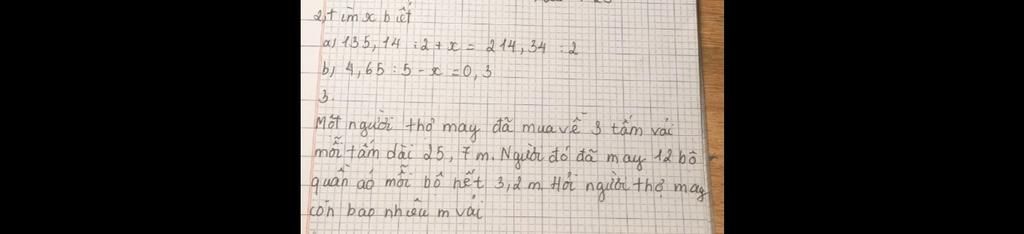 2, tìm x biết
a) 135,14 : 2 + x = 214,34 : 2
b) 4,65 : 5 - x = 0,3
3.
Một người thợ may đã mua về 3 tấm vải
mỗi tấm dài 25,7 m. Người đó đã may 12 bộ
quần áo mỗi bộ hết 3,2 m. Hỏi người thợ may
còn bao nhiêu m vải